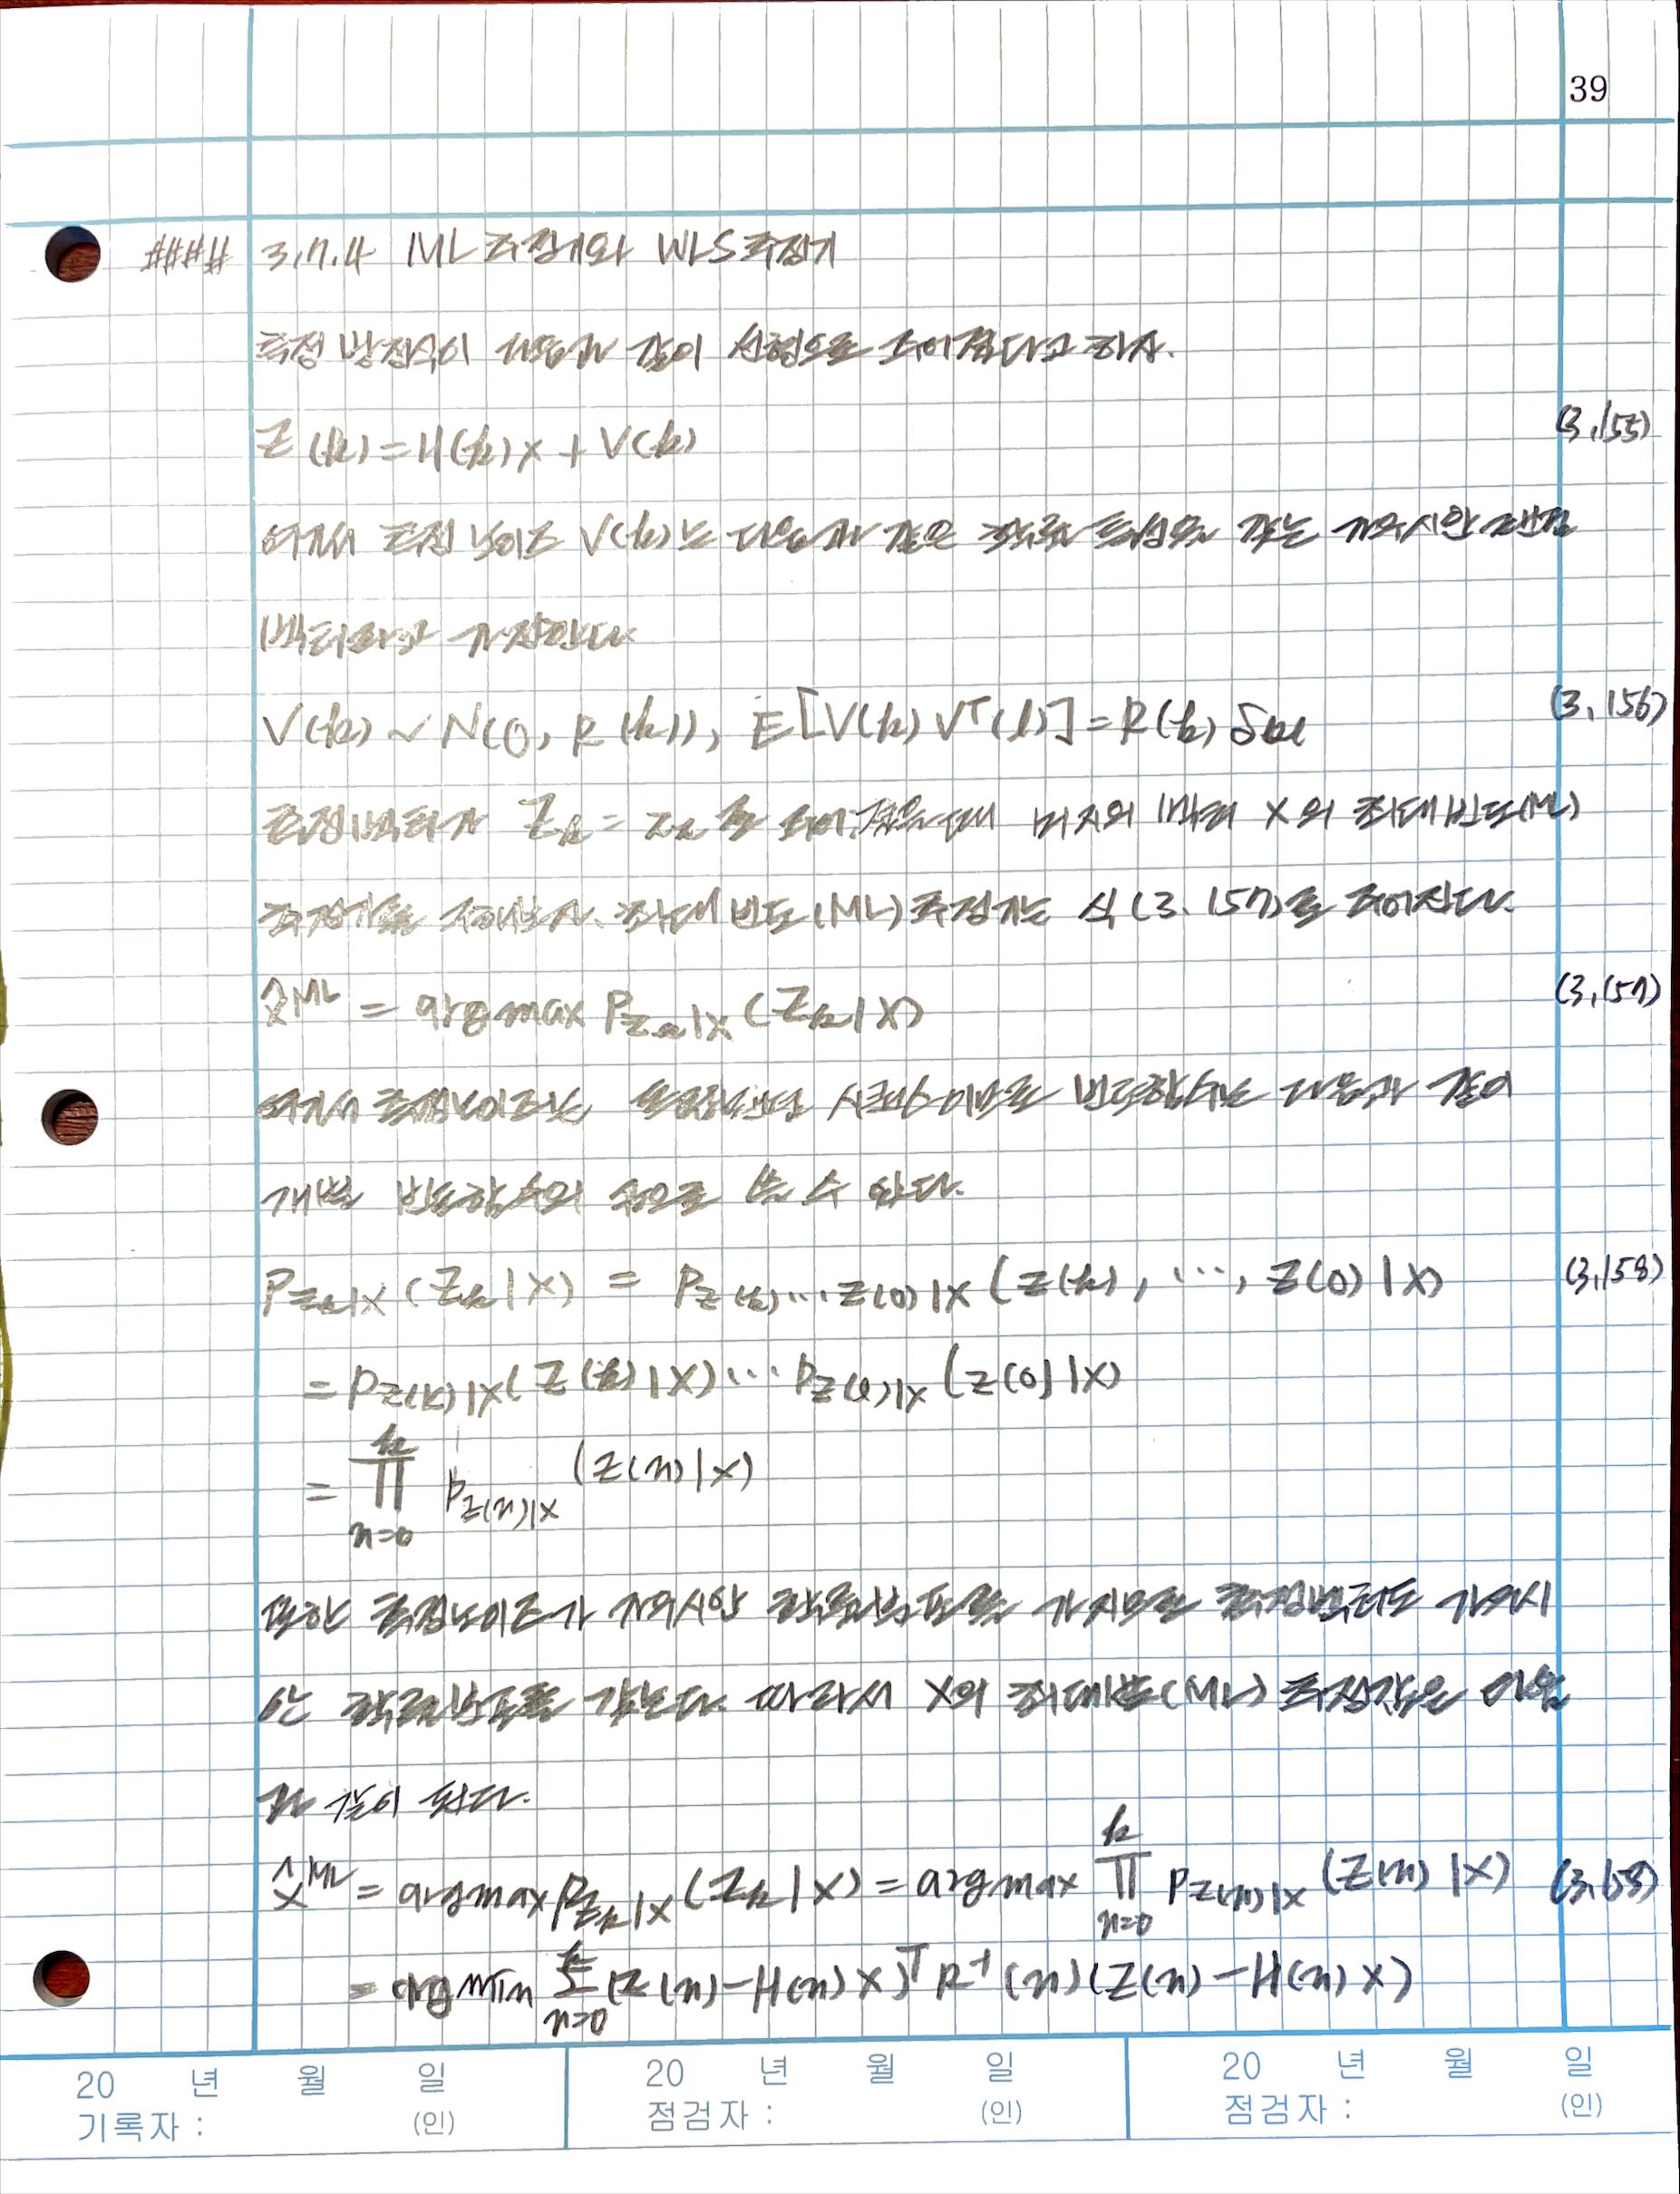 39
#### 3.7.4 ML 추정기와 WLS 추정기
측정 방정식이 다음과 같이 선형으로 주어졌다고 하자.
Z(k) = H(k)x + V(k) (3.155)
여기서 측정 노이즈 V(k)는 다음과 같은 확률 특성을 갖는 가우시안 랜덤
벡터라고 가정한다
V(k) ~ N(0, R(k)), E[V(k) V^T(l)] = R(k) δkl (3.156)
측정벡터가 Z_k = z_k로 주어졌을 때 미지의 벡터 X의 최대빈도(ML)
추정기를 구해보자. 최대빈도(ML) 추정기는 식 (3.157)로 주어진다.
x̂^ML = argmax P_{Z_k|X} (Z_k|X) (3.157)
여기서 측정노이즈는 독립랜덤 시퀀스이므로 빈도함수는 다음과 같이
개별 빈도함수의 곱으로 쓸 수 있다.
P_{Z_k|X} (Z_k|X) = P_{Z(k)...Z(0)|X} (Z(k), ..., Z(0)|X) (3.158)
= P_{Z(k)|X} (Z(k)|X) ... P_{Z(0)|X} (Z(0)|X)
= ∏_{n=0}^{k} P_{Z(n)|X} (Z(n)|X)
또한 측정노이즈가 가우시안 확률분포를 가지므로 측정벡터도 가우시
안 확률분포를 갖는다. 따라서 X의 최대빈도(ML) 추정값은 다음
과 같이 된다.
x̂^ML = argmax P_{Z_k|X} (Z_k|X) = argmax ∏_{n=0}^{k} P_{Z(n)|X} (Z(n)|X) (3.158)
= argmin ∑_{n=0}^{k} (Z(n) - H(n)X)^T R^{-1}(n) (Z(n) - H(n)X)
20 년 월 일 20 년 월 일 20 년 월 일
기록자 : (인) 점검자 : (인) 점검자 : (인)